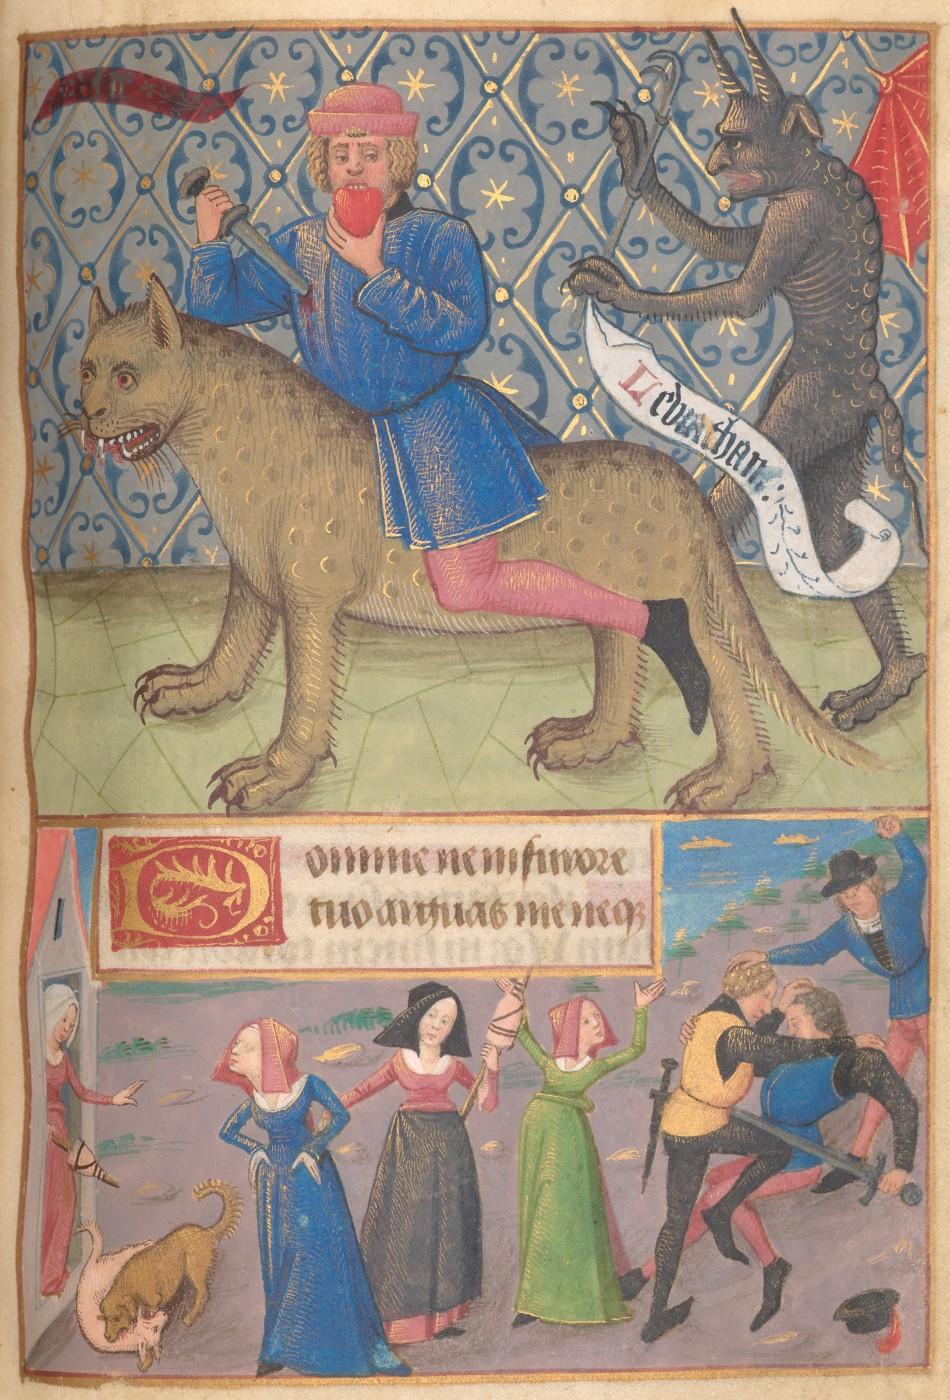 Leviathan
Domine ne in furore
tuo arguas me neq